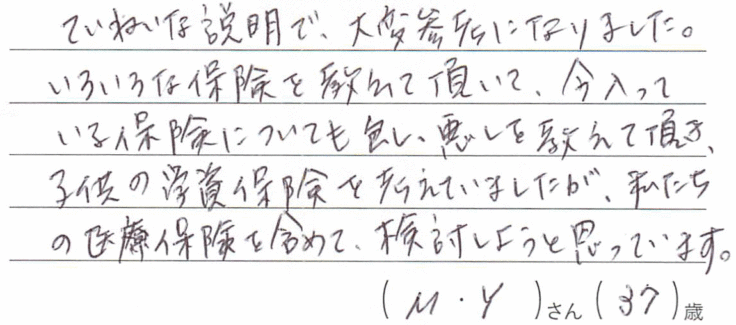 ていねいな説明で、大変参考になりました。
いろいろな保険を教えて頂いて、今入って
いる保険についても良し、悪しを教えて頂き、
子供の学資保険を考えていましたが、私たち
の医療保険を含めて、検討しようと思っています。
(M・Y)さん(37)歳